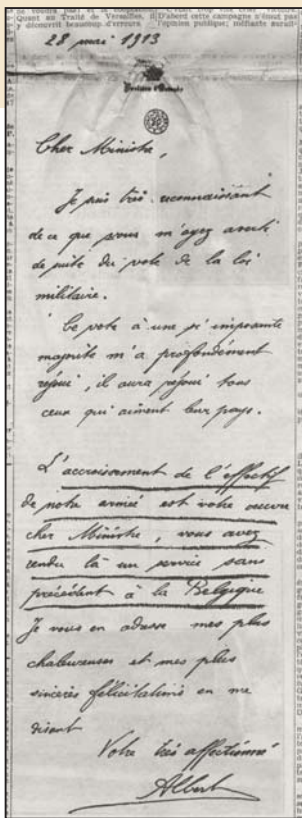 Quant au Traité de Versailles, il
y découvrit beaucoup d'erreurs
D'abord cette campagne n'émut pas
l'opinion publique;
28 mai 1913
Cher Ministre,
Je suis très reconnaissant
de ce que vous m'ayez averti
de suite du vote de la loi
militaire.
Ce vote à une si imposante
majorité m'a profondément
réjoui, il aura réjoui tous
ceux qui aiment leur pays.
L'accroissement de l'effectif
de notre armée est votre œuvre
cher Ministre, vous avez
rendu là un service sans
précédent à la Belgique
Je vous en adresse mes plus
chaleureuses et mes plus
sincères félicitations en me
disant
Votre très affectionné
Albert